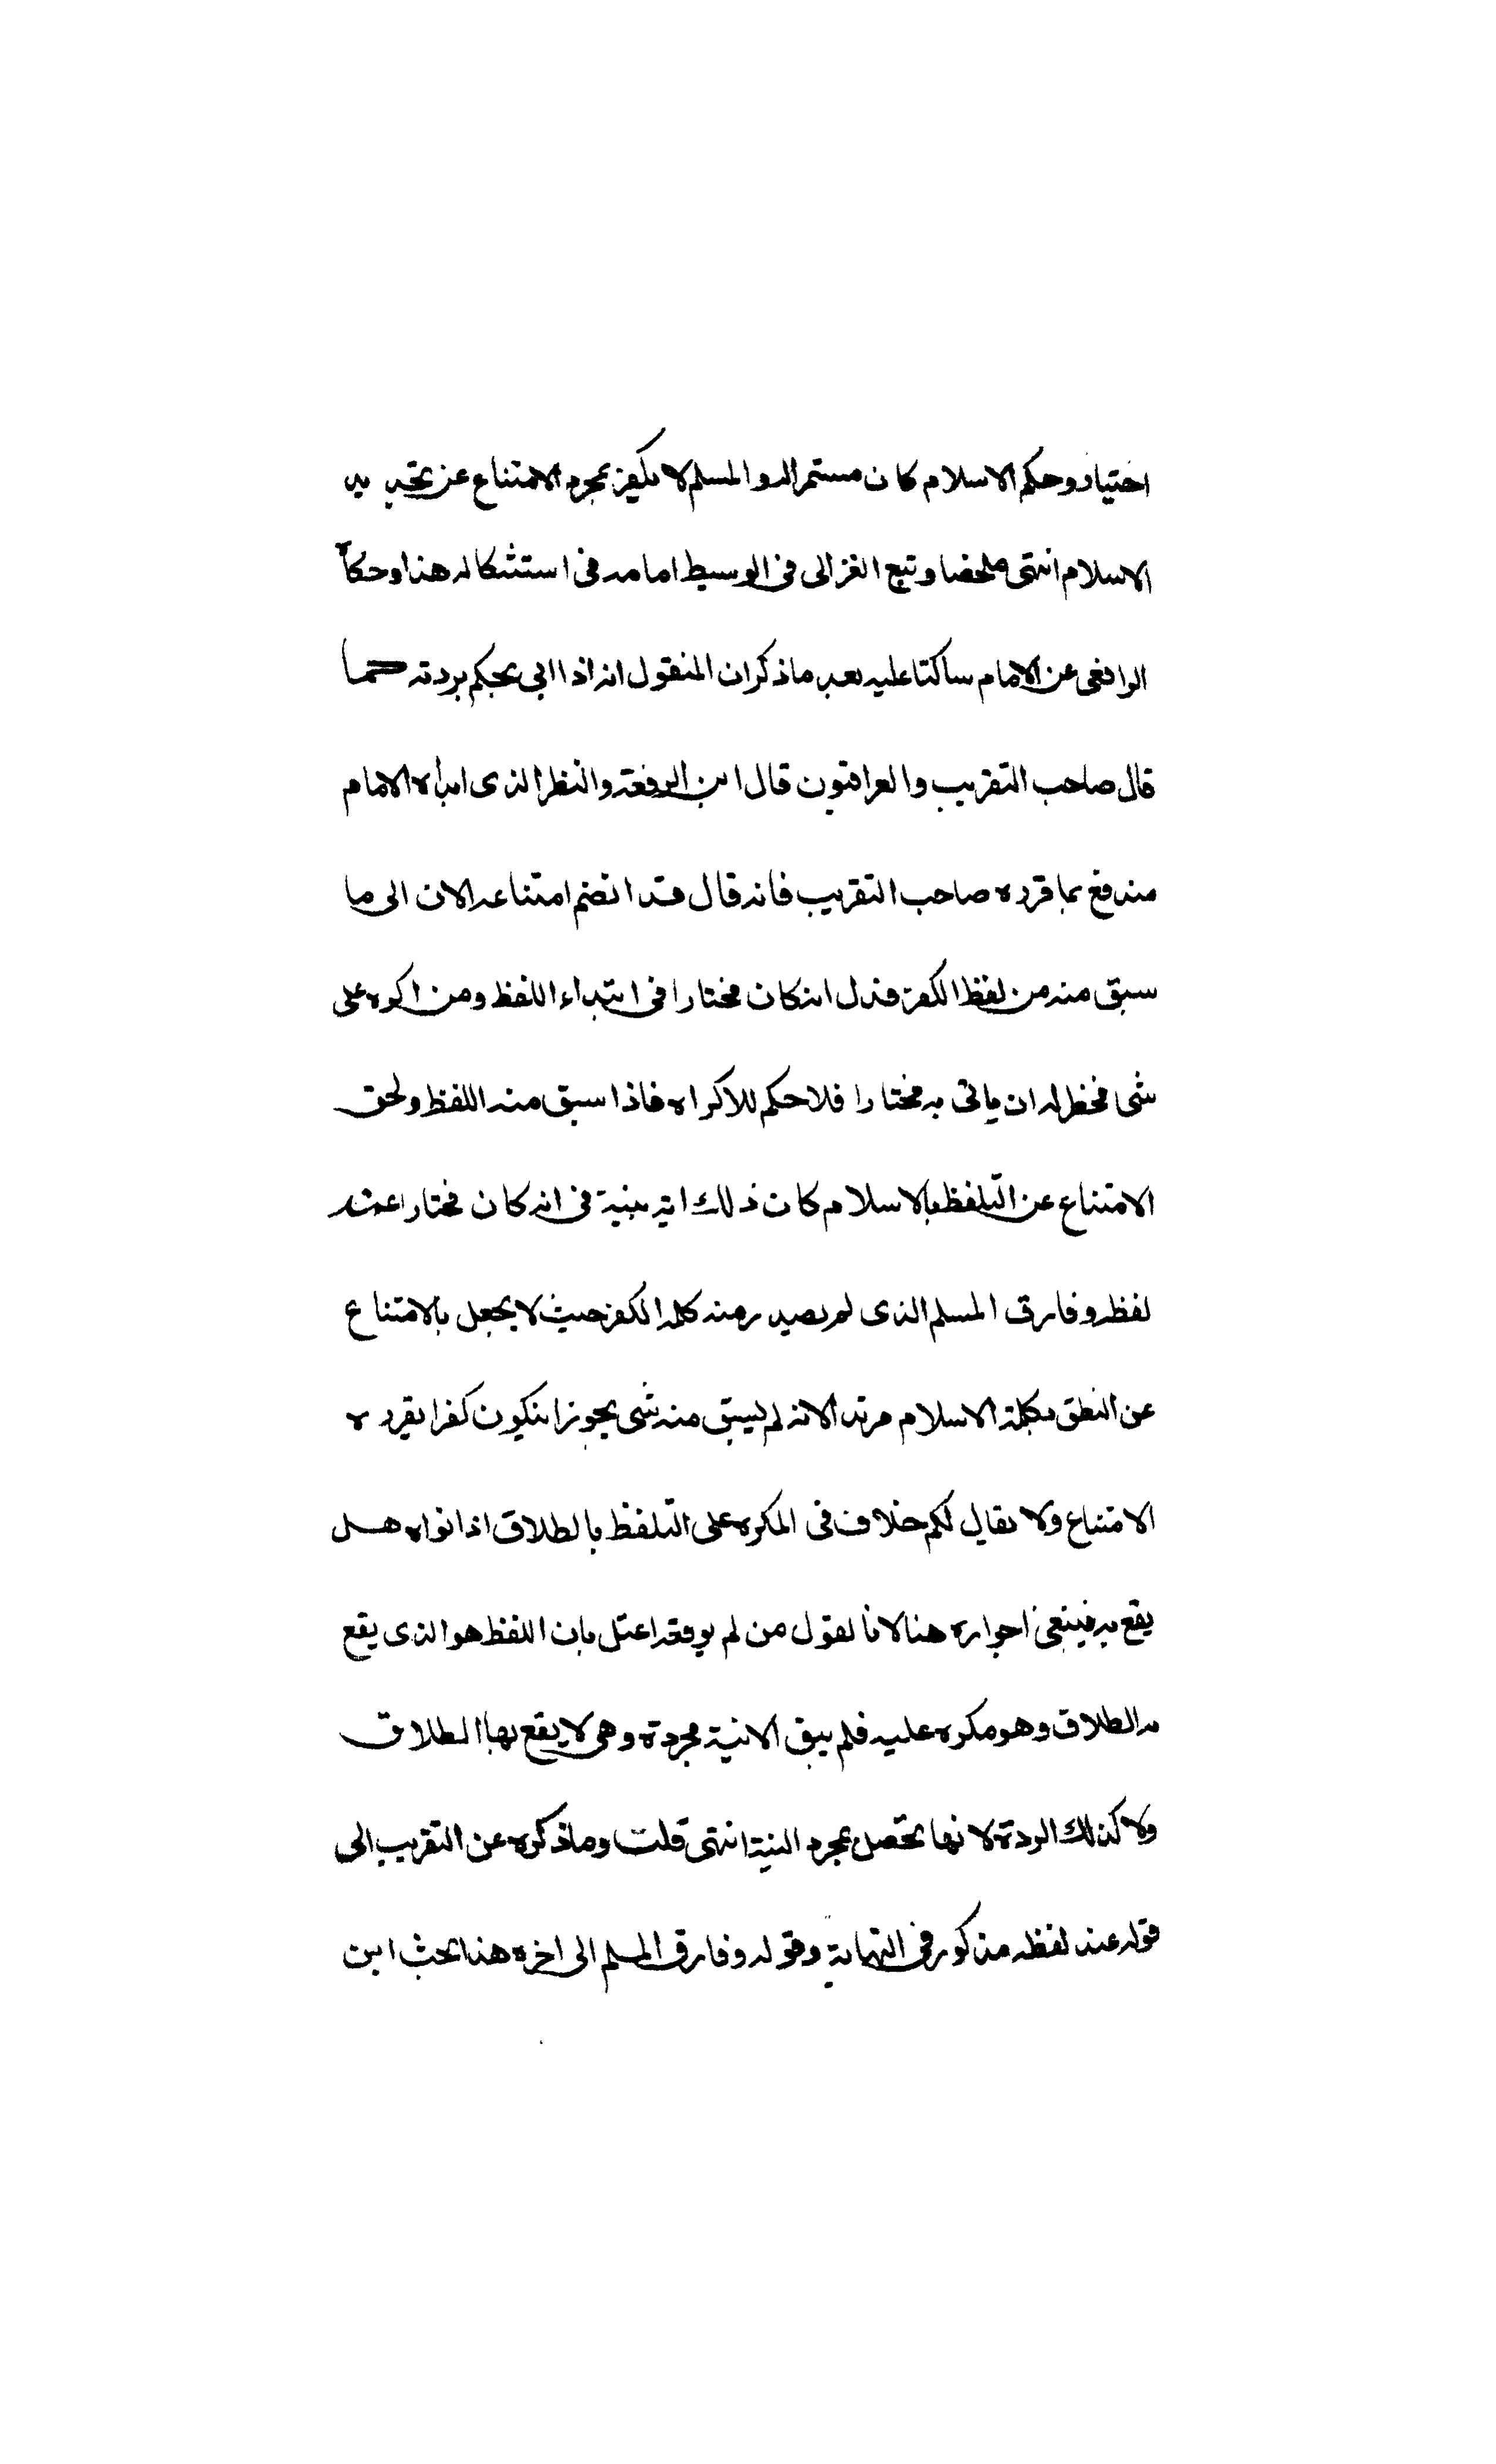 اختيار وحكم الاسلام كان مستمر اله والمسلم لا يكفر بمجرد الامتناع عن تجديد
الاسلام انتهى ملخصا وتبع الغزالى فى الوسيط امامه فى استشكاله هذا وحكاه
الرافعى عن الامام ساكتا عليه بعد ما ذكر ان المنقول انه اذا ابى يحكم بردته كما
قال صاحب التقريب والعراقيون قال ابن الرفعة والنظر الذى ابداه الامام
مندفع بما قرره صاحب التقريب فانه قال قد انضم امتناعه الان الى ما
سبق منه من لفظ الكفر فدل انه كان مختارا فى ابتداء اللفظ ومن اكره على
شى فخطر له ان ياتى به مختارا فلا حكم للاكراه فاذا سبق منه اللفظ ولحق
الامتناع عن التلفظ بالاسلام كان ذلك اية بينة فى انه كان مختارا عند
لفظه وفارق المسلم الذى لم يصدر منه كلمة الكفر حيث لا يجعل بالامتناع
عن النطق بكلمة الاسلام مرتدا لانه لم يسبق منه شى يجوز ان يكون كفرا يقرره
الامتناع ولا يقال لكم خلاف فى المكره على التلفظ بالطلاق اذا نواه هل
يقع به فينبغى اجراره هنا لانا نقول من لم يوقعه اعتل بان اللفظ هو الذى يقع
به الطلاق وهو مكره عليه فلم يبق الا نية مجردة وهى لا يقع بها الطلاق
ولا كذلك الردة لانها تحصل بمجرد النية انتهى قلت وما ذكره عن التقريب الى
قوله عند لفظه مذكور فى النهاية وقوله وفارق المسلم الى اخره هذا بحث ابن